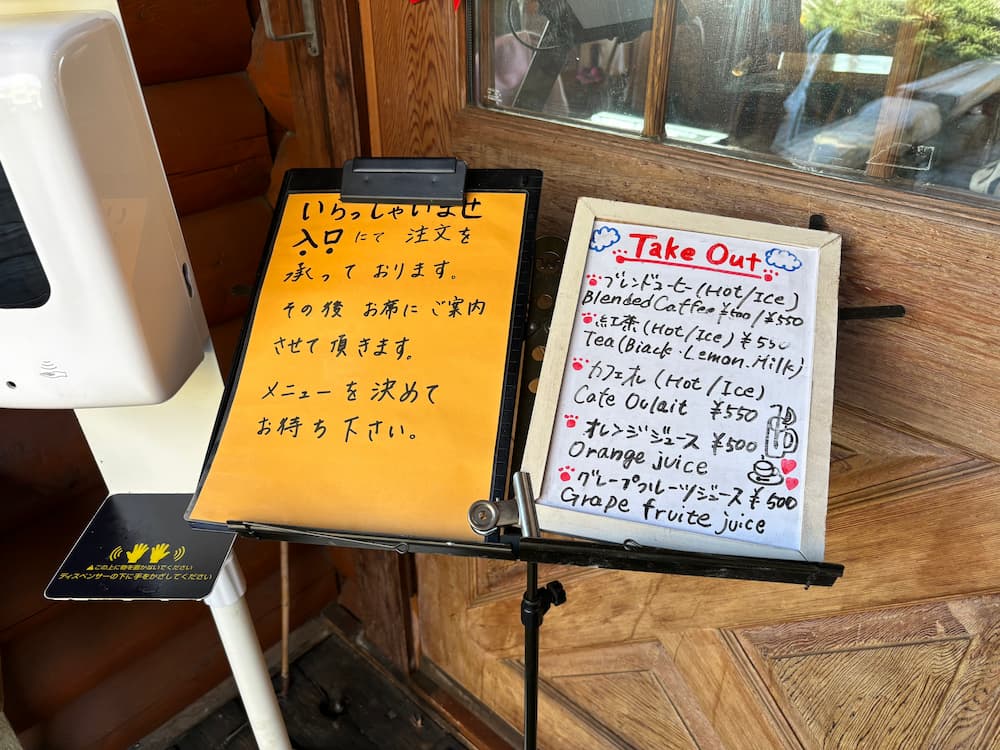 いらっしゃいませ
入口にて 注文を
承って おります。
その後 お席に ご案内
させて 頂きます。
メニューを 決めて
お待ち下さい。
Take Out
ブレンドコーヒー (Hot/Ice)
Blended Caffee ¥500/¥550
紅茶 (Hot/Ice) ¥550
Tea (Black・Lemon.Milk)
カフェオレ (Hot/Ice)
Cafe Oulait ¥550
オレンジジュース ¥500
Orange juice
グレープフルーツジュース ¥500
Grape fruite juice
▲この上に物を置かないでください
ディスペンサーの下に手をかざしてください